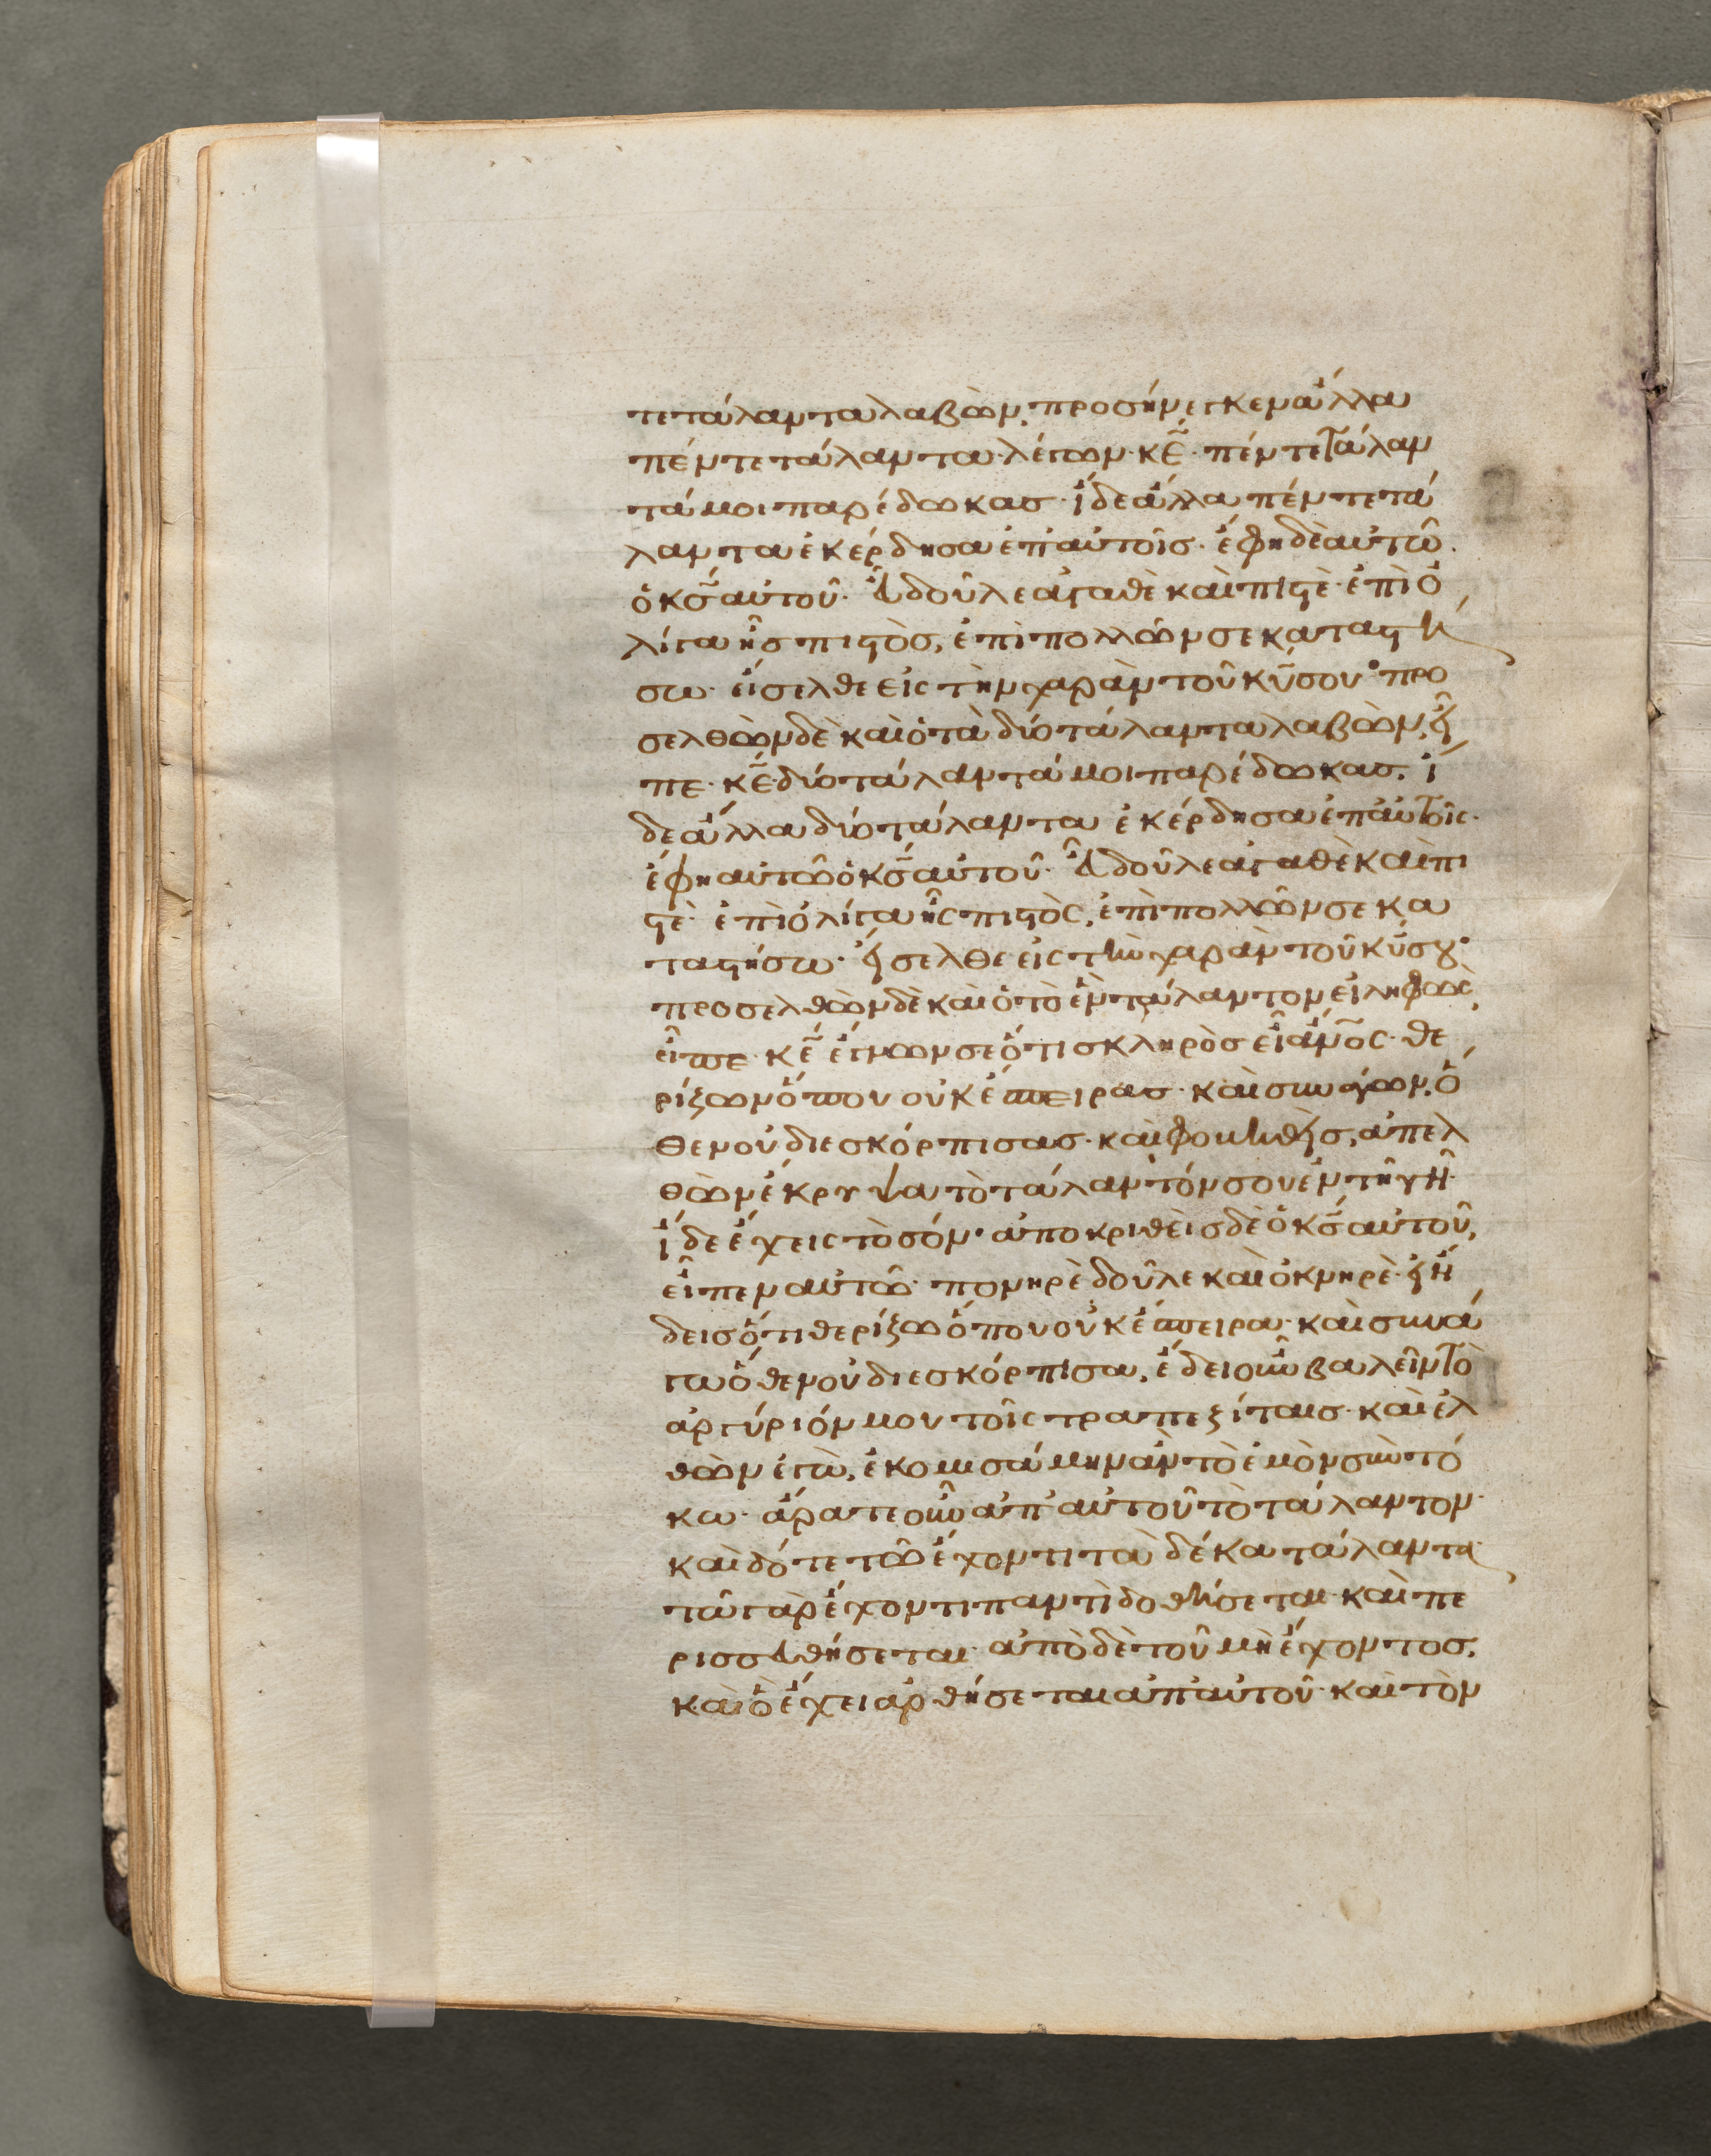 τε τάλαντα λαβὼν, προσήνεγκεν ἄλλα
πέντε τάλαντα· λέγων· κ̅ε̅· πέντε τάλαν
τά μοι παρέδωκας· ἴδε ἄλλα πέντε τά
λαντα ἐκέρδησα ἐπ' αὐτοῖς· ἔφη δὲ αὐτῶ·
ὁ κ̅ς̅ αὐτοῦ· εὖ δοῦλε ἀγαθὲ καὶ πιστὲ· ἐπὶ ὀ
λίγα ἦς πιστὸς, ἐπὶ πολλῶν σε καταστή
σω· εἴσελθε εἰς τὴν χαρὰν τοῦ κ̅υ̅ σου· προ
σελθὼν δὲ καὶ ὁ τὰ δύο τάλαντα λαβὼν, εἶ
πε· κ̅ε̅· δύο τάλαντά μοι παρέδωκας, ἴ
δε ἄλλα δύο τάλαντα ἐκέρδησα ἐπ' αὐτοῖς·
ἔφη αὐτῶ ὁ κ̅ς̅ αὐτοῦ· εὖ δοῦλε ἀγαθὲ καὶ πι
στὲ· ἐπὶ ὀλίγα ἦς πιστὸς, ἐπὶ πολλῶν σε κα
ταστήσω· εἴσελθε εἰς τὴν χαρὰν τοῦ κ̅υ̅ σου·
προσελθὼν δὲ καὶ ὁ τὸ ἓν τάλαντον εἰληφὼς,
εἶπε· κ̅ε̅ ἔγνων σε ὅτι σκληρὸς εἶ α̅ν̅ο̅ς̅· θε
ρίζων ὅπου οὐκ ἔσπειρας· καὶ συνάγων, ὅ
θεν οὐ διεσκόρπισας· καὶ φοβηθεὶς, ἀπελ
θὼν ἔκρυψα τὸ τάλαντόν σου ἐν τῆ γῆ·
ἴδε ἔχεις τὸ σόν· ἀποκριθεὶς δὲ ὁ κ̅ς̅ αὐτοῦ,
εἶπεν αὐτῶ· πονηρὲ δοῦλε καὶ ὀκνηρὲ· εἤ
δεις ὅτι θερίζω ὅπου οὐκ ἔσπειρα· καὶ συνά
γω ὅθεν οὐ διεσκόρπισα, ἔδει οὖν βαλεῖν τὸ
ἀργύριόν μου τοῖς τραπεζίταις· καὶ ἐλ
θὼν ἐγὼ, ἐκομισάμην ἂν τὸ ἐμὸν σὺν τό
κω· ἄρατε οὖν ἀπ' αὐτοῦ τὸ τάλαντον·
καὶ δότε τῶ ἔχοντι τὰ δέκα τάλαντα·
τῶ γὰρ ἔχοντι παντὶ δοθήσεται· καὶ πε
ρισσευθήσεται· ἀπὸ δὲ τοῦ μὴ ἔχοντος,
καὶ ὃ ἔχει ἀρθήσεται ἀπ' αὐτοῦ· καὶ τὸν